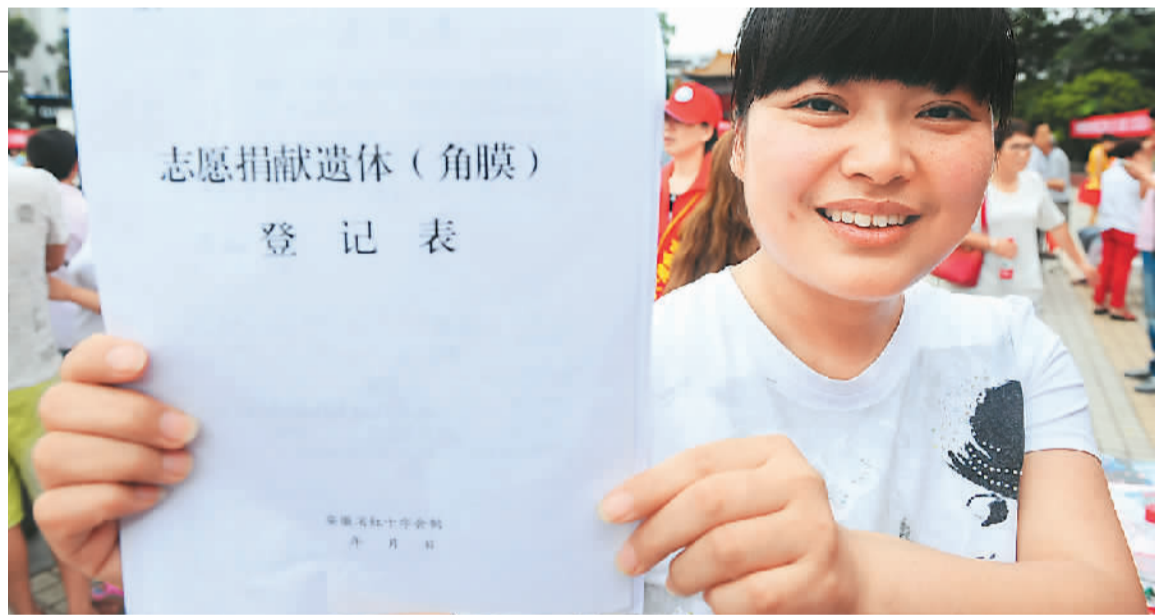 志愿捐献遗体（角膜）
登 记 表
安徽省红十字会制
年 月 日